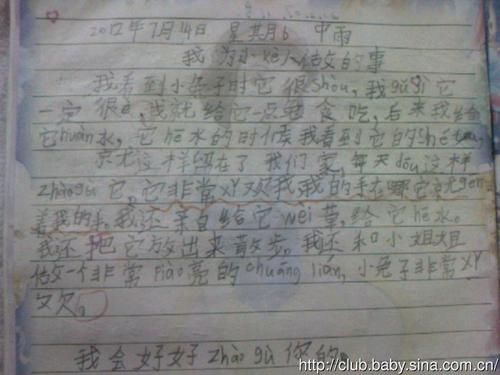 2012年7月14日 星其月6 中雨
我为小kè人做文的事
我看到小兔子时它很shòu,我gūjì它
一定很è,我就给它一点兔食吃,后来我给
它huàn水,它hē水的时候我看到它的shé
京尤这样留在了我们家,每天dōu这样
zhàogù它,它非常xǐ欢我我的手在哪它京尤gēn
着我的手。我还亲自给它wèi草,给它hē水。
我还把它放出来散步。我还和小姐姐
做文一个非常piào亮的chuāng lián,小兔子非常xǐ
又欠。
我会好好zhào gù你的。
http://club.baby.sina.com.cn/